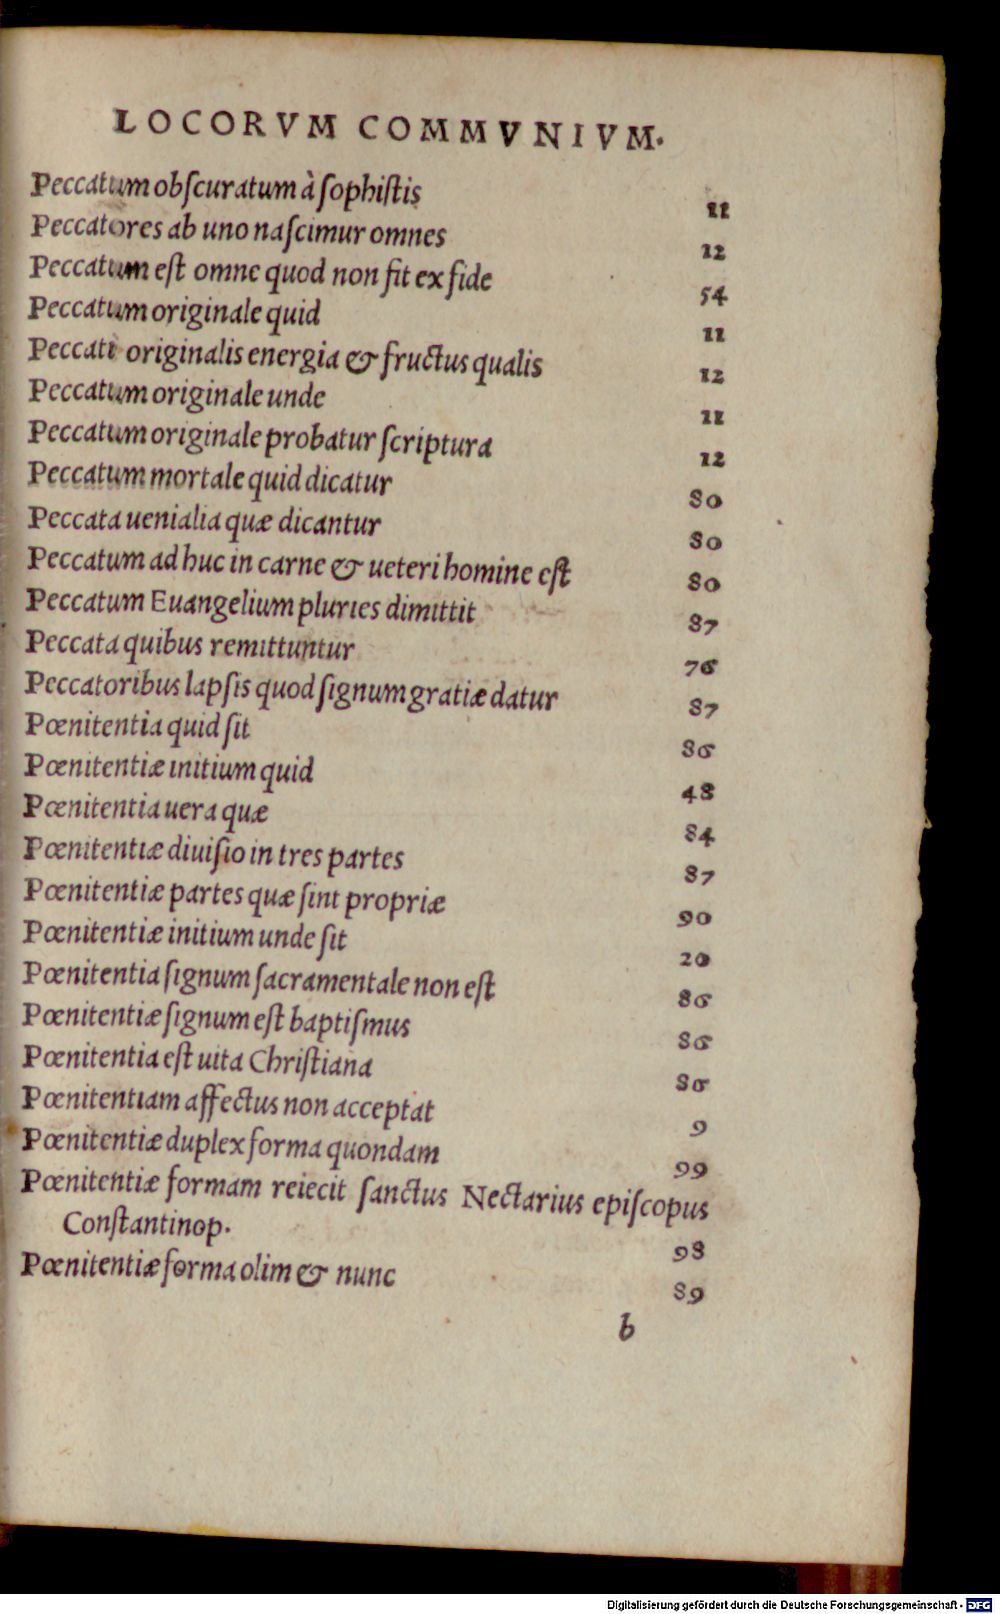 LOCORVM COMMVNIVM.
Peccatum obſcuratum à ſophiſtis 11
Peccatores ab uno naſcimur omnes 12
Peccatum eſt omne quod non fit ex fide 54
Peccatum originale quid 11
Peccati originalis energia & fructus qualis 12
Peccatum originale unde 11
Peccatum originale probatur ſcriptura 12
Peccatum mortale quid dicatur 80
Peccata uenialia quæ dicantur 80
Peccatum ad huc in carne & ueteri homine eſt 80
Peccatum Euangelium pluries dimittit 87
Peccata quibus remittuntur 76
Peccatoribus lapſis quod ſignum gratiæ datur 87
Pœnitentia quid ſit 86
Pœnitentiæ initium quid 48
Pœnitentia uera quæ 84
Pœnitentiæ diuiſio in tres partes 87
Pœnitentiæ partes quæ ſint propriæ 90
Pœnitentiæ initium unde ſit 20
Pœnitentia ſignum ſacramentale non eſt 86
Pœnitentiæ ſignum eſt baptiſmus 86
Pœnitentia eſt uita Chriſtiana 86
Pœnitentiam affectus non acceptat 9
Pœnitentiæ duplex forma quondam 99
Pœnitentiæ formam reiecit ſanctus Nectarius epiſcopus
Conſtantinop. 98
Pœnitentiæ forma olim & nunc 89
b
Digitalisierung gefördert durch die Deutsche Forschungsgemeinschaft - DFG